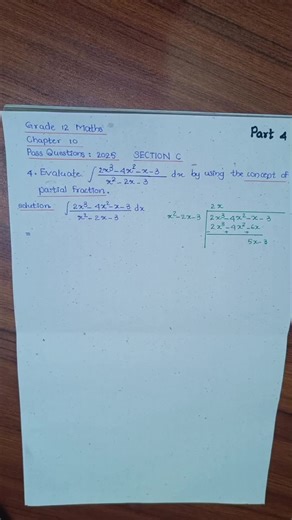 Grade 12 Maths
Part 4
Chapter 10
Pass Questions: 2025 SECTION C
4. Evaluate ∫ (2x³-4x²-x-3)/(x²-2x-3) dx by using the concept of
partial fraction.
solution ∫ (2x³-4x²-x-3)/(x²-2x-3) dx
=
2x
x²-2x-3 2x³-4x²-x-3
2x³-4x²-6x
- + +
5x-3